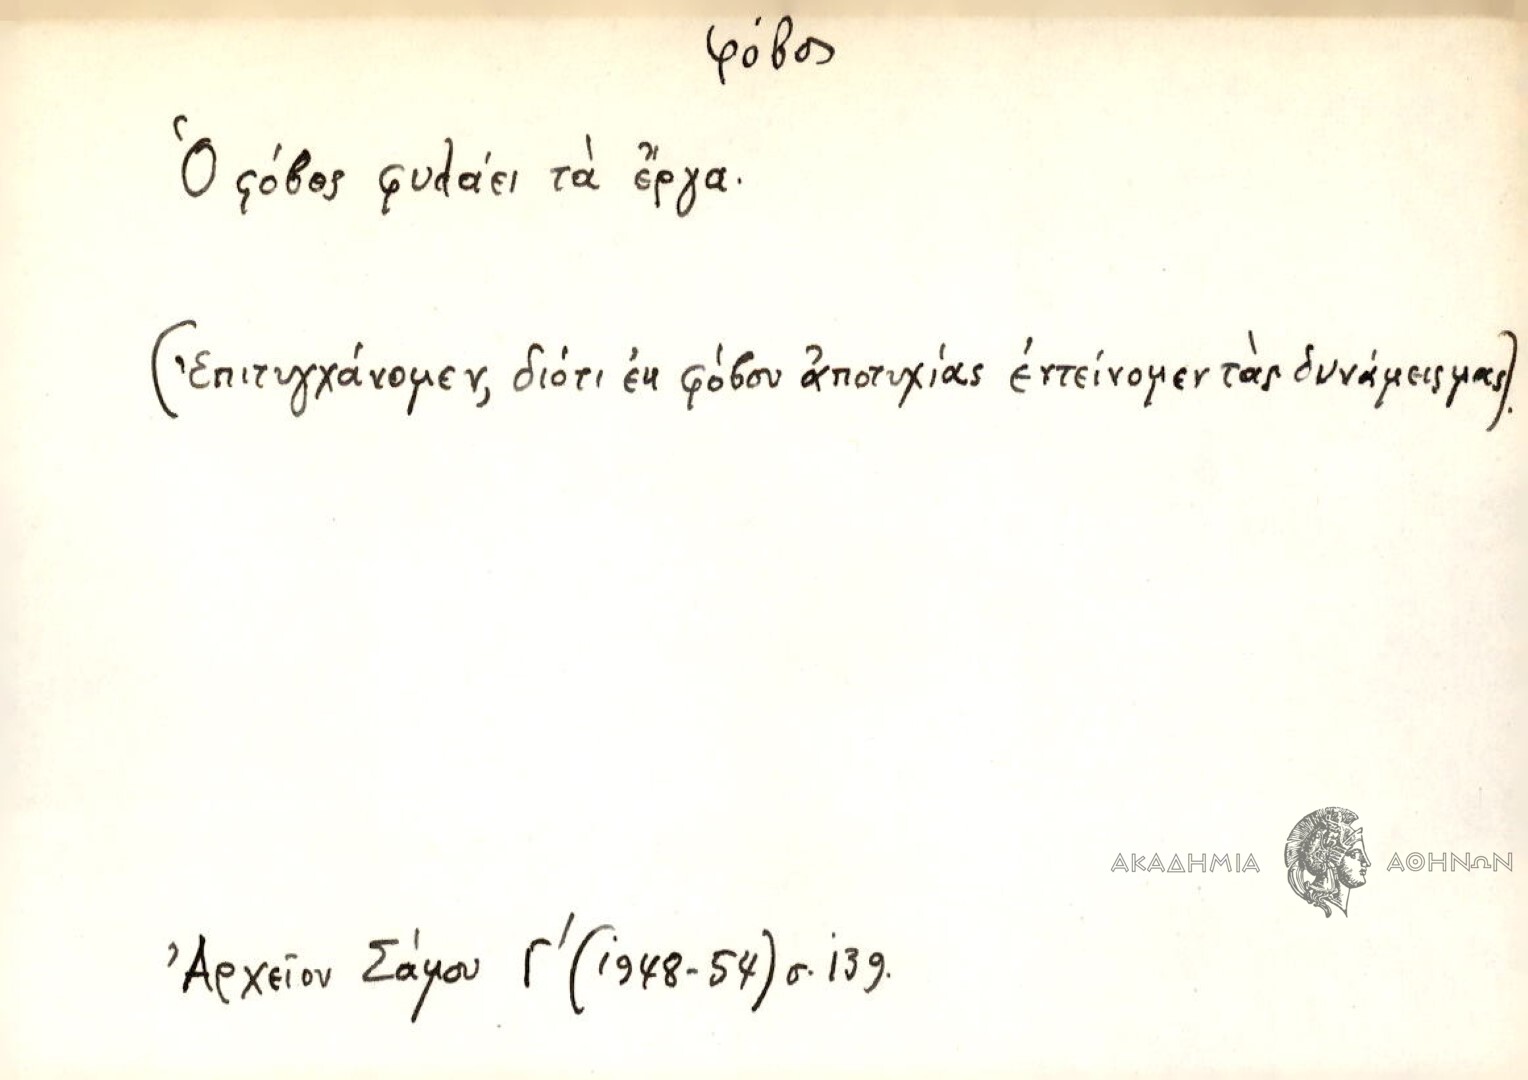 φόβος
Ὁ φόβος φυλάει τὰ ἔργα.
(Ἐπιτυγχάνομεν, διότι ἐκ φόβου ἀποτυχίας ἐντείνομεν τὰς δυνάμεις μας).
ΑΚΑΔΗΜΙΑ ΑΘΗΝΩΝ
Ἀρχεῖον Σάμου Γ' (1948-54) σ. 139.